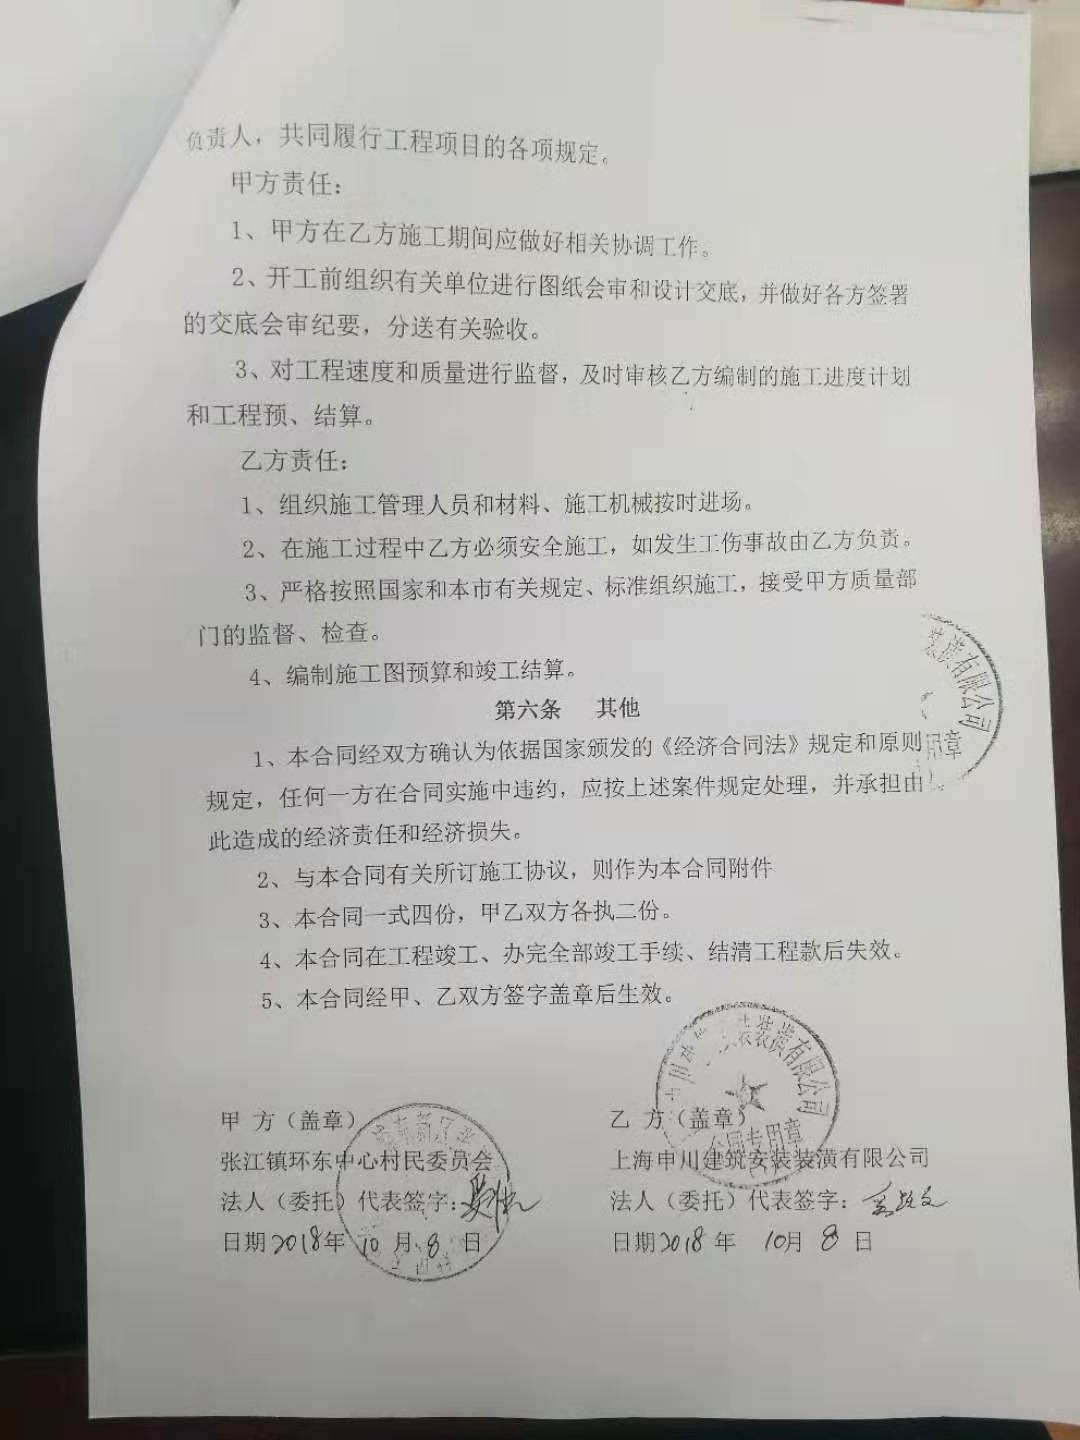 负责人，共同履行工程项目的各项规定。
甲方责任：
1、甲方在乙方施工期间应做好相关协调工作。
2、开工前组织有关单位进行图纸会审和设计交底，并做好各方签署
的交底会审纪要，分送有关验收。
3、对工程速度和质量进行监督，及时审核乙方编制的施工进度计划
和工程预、结算。
乙方责任：
1、组织施工管理人员和材料、施工机械按时进场。
2、在施工过程中乙方必须安全施工，如发生工伤事故由乙方负责。
3、严格按照国家和本市有关规定、标准组织施工，接受甲方质量部
门的监督、检查。
装潢有限公司
用章
4、编制施工图预算和竣工结算。
第六条 其他
1、本合同经双方确认为依据国家颁发的《经济合同法》规定和原则
规定，任何一方在合同实施中违约，应按上述案件规定处理，并承担由
此造成的经济责任和经济损失。
2、与本合同有关所订施工协议，则作为本合同附件
3、本合同一式四份，甲乙双方各执二份。
4、本合同在工程竣工、办完全部竣工手续、结清工程款后失效。
5、本合同经甲、乙双方签字盖章后生效。
装装潢有限公司
合同专用章
甲 方（盖章）
张江镇环东中心村民委员会
法人（委托）代表签字：
日期2018年 10 月 8 日
乙 方（盖章）
上海申川建筑安装装潢有限公司
法人（委托）代表签字：
日期2018 年 10月 8 日